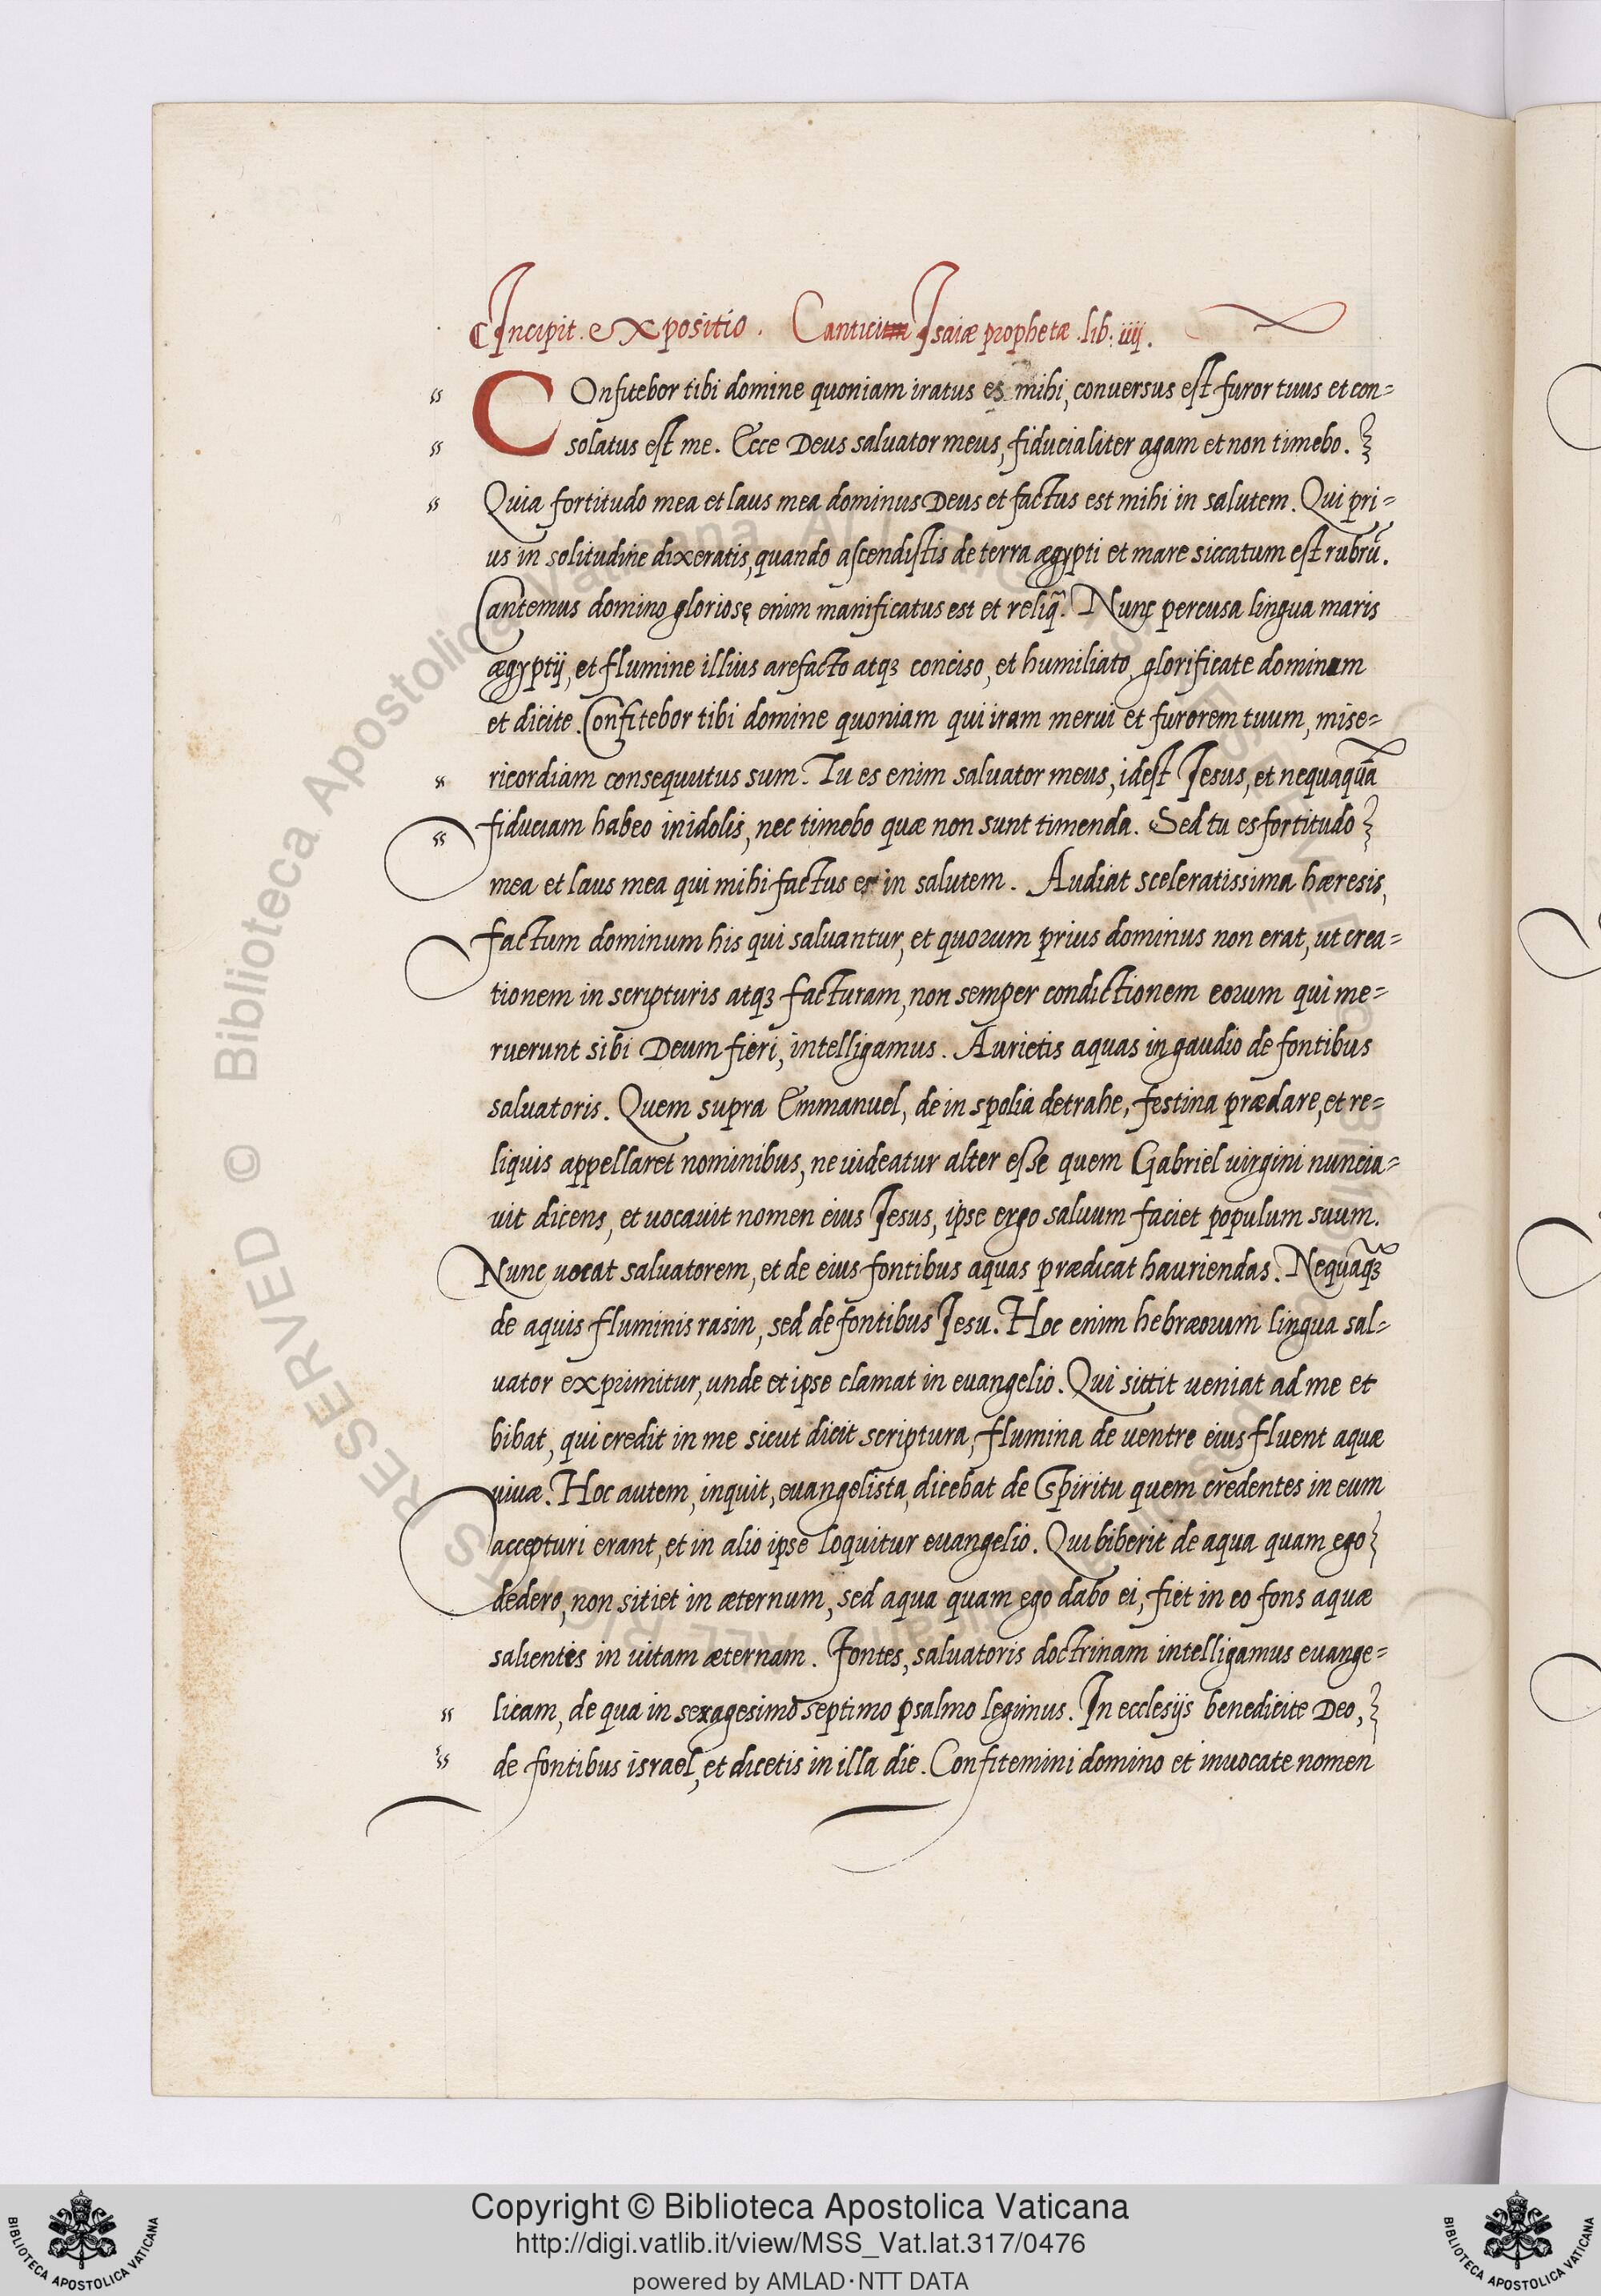 Incipit. expositio. Canticum Isaiæ prophetæ .lib: iiij.
COnfitebor tibi domine quoniam iratus es mihi, conuersus est furor tuus et con=
solatus est me. Ecce Deus saluator meus, fiducialiter agam et non timebo.
Quia fortitudo mea et laus mea dominus Deus et factus est mihi in salutem. Qui pri=
us in solitudine dixeratis, quando ascendistis de terra ægypti et mare siccatum est rubrū.
Cantemus domino gloriosę enim manificatus est et reliq̃. Nunc percusa lingua maris
ægyptij, et flumine illius arefacto atqȝ conciso, et humiliato, glorificate dominum
et dicite. Confitebor tibi domine quoniam qui iram merui et furorem tuum, mise=
ricordiam consequutus sum. Tu es enim saluator meus, idest Jesus, et nequaquā
fiduciam habeo inidolis, nec timebo quæ non sunt timenda. Sed tu es fortitudo
mea et laus mea qui mihi factus es in salutem. Audiat sceleratissima hæresis,
factum dominum his qui saluantur, et quorum prius dominus non erat, ut crea=
tionem in scripturis atqȝ facturam, non semper condictionem eorum qui me=
ruerunt sibi Deum fieri, intelligamus. Aurietis aquas in gaudio de fontibus
saluatoris. Quem supra Emmanuel, de in spolia detrahe, festina prædare, et re=
liquis appellaret nominibus, ne uideatur alter esse quem Gabriel uirgini nuncia=
uit dicens, et uocauit nomen eius Jesus, ipse ergo saluum faciet populum suum.
Nunc uocat saluatorem, et de eius fontibus aquas prædicat hauriendas. Nequaqȝ
de aquis fluminis rasin, sed de fontibus Jesu. Hoc enim hebræorum lingua sal=
uator exprimitur, unde et ipse clamat in euangelio. Qui sittit ueniat ad me et
bibat, qui credit in me sicut dicit scriptura, flumina de uentre eius fluent aquæ
uiuæ. Hoc autem, inquit, euangelista, dicebat de Spiritu quem credentes in eum
accepturi erant, et in alio ipse loquitur euangelio. Qui biberit de aqua quam ego
dedero, non sitiet in æternum, sed aqua quam ego dabo ei, fiet in eo fons aquæ
salientis in uitam æternam. Fontes, saluatoris doctrinam intelligamus euange=
licam, de qua in sexagesimo septimo psalmo legimus. In ecclesijs benedicite Deo,
de fontibus israel, et dicetis in illa die. Confitemini domino et inuocate nomen
© Biblioteca Apostolica Vaticana ALL RIGHTS RESERVED
Copyright © Biblioteca Apostolica Vaticana
http://digi.vatlib.it/view/MSS_Vat.lat.317/0476
powered by AMLAD·NTT DATA
BIBLIOTECA APOSTOLICA VATICANA
BIBLIOTECA APOSTOLICA VATICANA